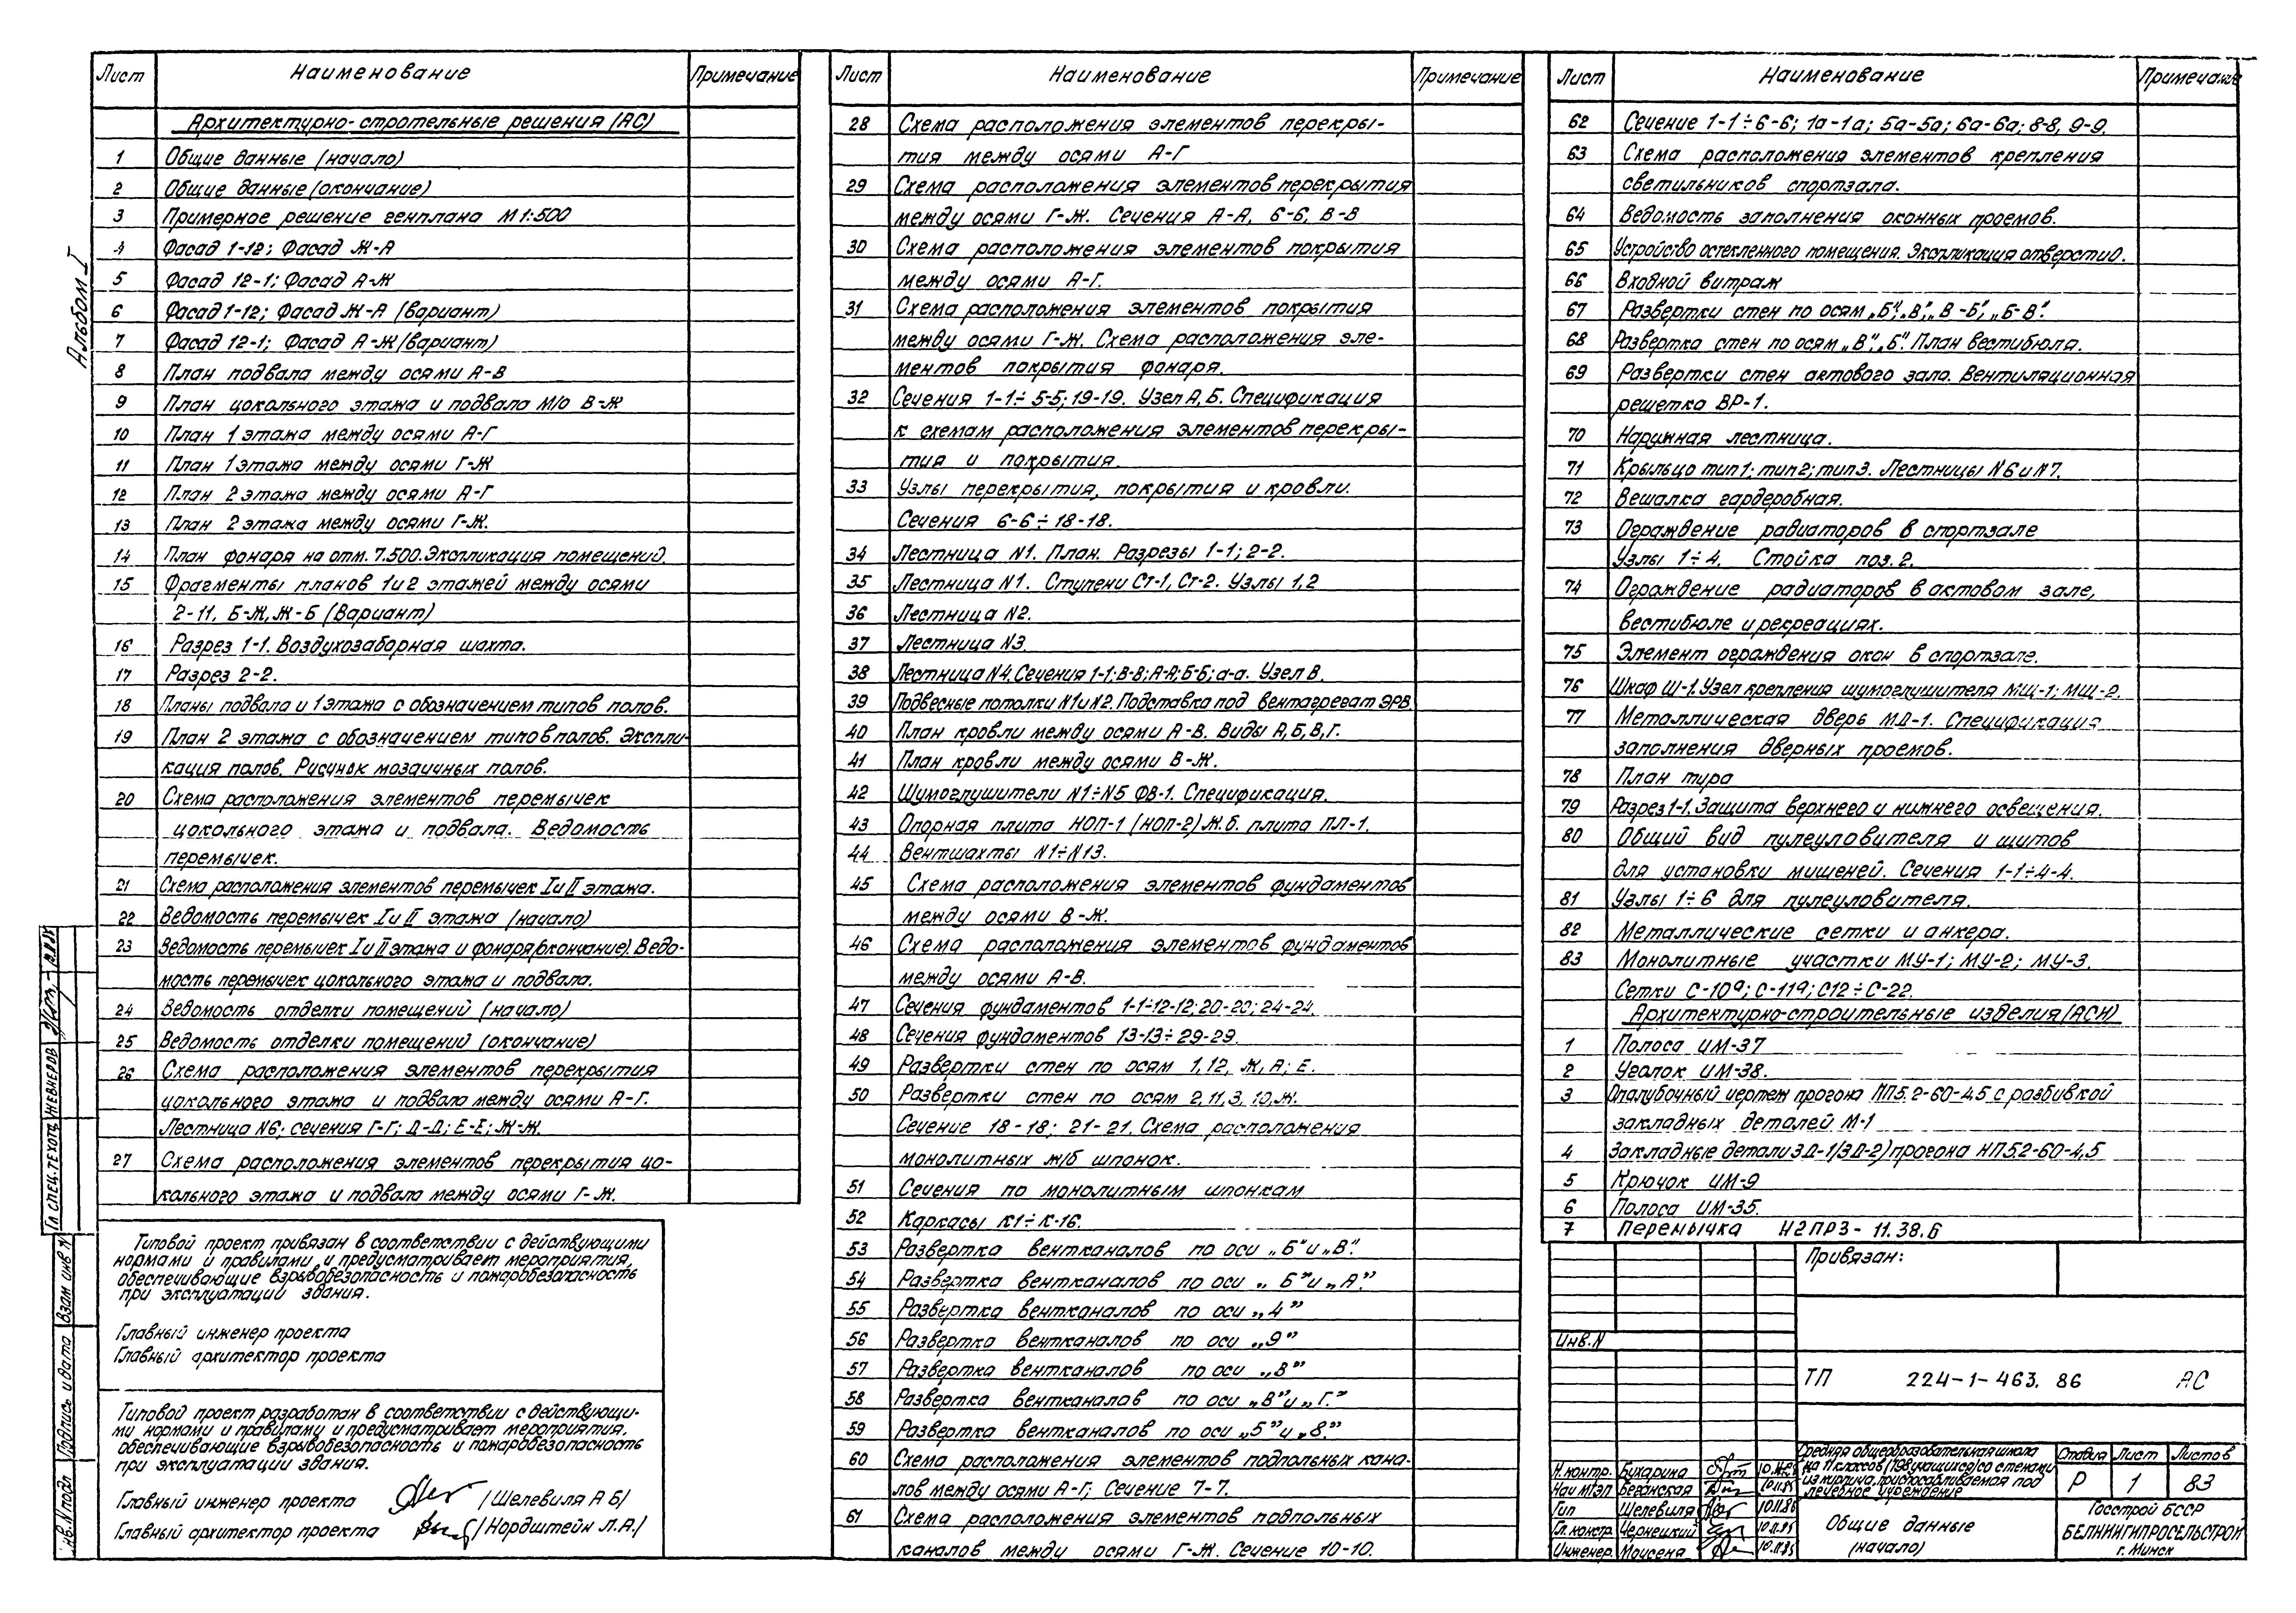 Альбом I
Лист Наименование Примечание
Архитектурно-строительные решения (АС)
1 Общие данные (начало)
2 Общие данные (окончание)
3 Примерное решение генплана М 1:500
4 Фасад 1-12; Фасад Ж-А
5 Фасад 12-1; Фасад А-Ж
6 Фасад 1-12; Фасад Ж-А (вариант)
7 Фасад 12-1; Фасад А-Ж (вариант)
8 План подвала между осями А-В
9 План цокольного этажа и подвала м/о В-Ж
10 План 1 этажа между осями А-Г
11 План 1 этажа между осями Г-Ж
12 План 2 этажа между осями А-Г
13 План 2 этажа между осями Г-Ж.
14 План фонаря на отм. 7.500. Экспликация помещений.
15 Фрагменты планов 1 и 2 этажей между осями
2-11, Б-Ж, Ж-Б (Вариант)
16 Разрез 1-1. Воздухозаборная шахта.
17 Разрез 2-2.
18 Планы подвала и 1 этажа с обозначением типов полов.
19 План 2 этажа с обозначением типов полов. Экспли-
кация полов. Рисунок мозаичных полов.
20 Схема расположения элементов перемычек
цокольного этажа и подвала. Ведомость
перемычек.
21 Схема расположения элементов перемычек I и II этажа.
22 Ведомость перемычек I и II этажа (начало)
23 Ведомость перемычек I и II этажа и фонаря (окончание). Ведо-
мость перемычек цокольного этажа и подвала.
24 Ведомость отделки помещений (начало)
25 Ведомость отделки помещений (окончание)
26 Схема расположения элементов перекрытия
цокольного этажа и подвала между осями А-Г.
Лестница N6; сечения Г-Г; Д-Д; Е-Е; Ж-Ж.
27 Схема расположения элементов перекрытия цо-
кольного этажа и подвала между осями Г-Ж.
Типовой проект привязан в соответствии с действующими
нормами и правилами и предусматривает мероприятия,
обеспечивающие взрывобезопасность и пожаробезопасность
при эксплуатации здания.
Главный инженер проекта
Главный архитектор проекта
Типовой проект разработан в соответствии с действующи-
ми нормами и правилами и предусматривает мероприятия,
обеспечивающие взрывобезопасность и пожаробезопасность
при эксплуатации здания.
Главный инженер проекта /Шелевиля А Б/
Главный архитектор проекта /Нордштейн Л.А./
Гл. спец. тех.отд. Жевнеров
Взам инв N
Подпись и дата
Инв. N подл
Лист Наименование Примечание
28 Схема расположения элементов перекры-
тия между осями А-Г
29 Схема расположения элементов перекрытия
между осями Г-Ж. Сечения А-А, Б-Б, В-В
30 Схема расположения элементов покрытия
между осями А-Г.
31 Схема расположения элементов покрытия
между осями Г-Ж. Схема расположения эле-
ментов покрытия фонаря.
32 Сечения 1-1÷5-5; 19-19. Узел А, Б. Спецификация
к схемам расположения элементов перекры-
тия и покрытия.
33 Узлы перекрытия, покрытия и кровли.
Сечения 6-6÷18-18.
34 Лестница N1. План. Разрезы 1-1; 2-2.
35 Лестница N1. Ступени Ст-1, Ст-2. Узлы 1,2
36 Лестница N2.
37 Лестница N3.
38 Лестница N4. Сечения 1-1; В-В; А-А; Б-Б; а-а. Узел В.
39 Подвесные потолки N1 и N2. Подставка под вентагрегат ЭРВ
40 План кровли между осями А-В. Виды А, Б, В, Г.
41 План кровли между осями В-Ж.
42 Шумоглушители N1÷N5 ФВ-1. Спецификация.
43 Опорная плита НОП-1 (НОП-2) Ж.б. плита ПЛ-1.
44 Вентшахты N1÷N13.
45 Схема расположения элементов фундаментов
между осями В-Ж.
46 Схема расположения элементов фундаментов
между осями А-В.
47 Сечения фундаментов 1-1÷12-12; 20-20; 24-24.
48 Сечения фундаментов 13-13÷29-29.
49 Развертки стен по осям 1, 12, Ж, А; Е.
50 Развертки стен по осям 2, 11, 3, 10, Ж.
Сечение 18-18; 21-21. Схема расположения
монолитных ж/б шпонок.
51 Сечения по монолитным шпонкам
52 Каркасы К1÷К-16.
53 Развертка вентканалов по оси „Б" и „В".
54 Развертка вентканалов по оси „Б" и „А".
55 Развертка вентканалов по оси „4"
56 Развертка вентканалов по оси „9"
57 Развертка вентканалов по оси „В"
58 Развертка вентканалов по оси „В" и „Г."
59 Развертка вентканалов по оси „5" и „8."
60 Схема расположения элементов подпольных кана-
лов между осями А-Г; Сечение 7-7.
61 Схема расположения элементов подпольных
каналов между осями Г-Ж. Сечение 10-10.
Лист Наименование Примечание
62 Сечение 1-1÷6-6; 1а-1а; 5а-5а; 6а-6а; 8-8, 9-9.
63 Схема расположения элементов крепления
светильников спортзала.
64 Ведомость заполнения оконных проемов.
65 Устройство остекленного помещения. Экспликация отверстий.
66 Входной витраж
67 Развертки стен по осям „Б", „В", „В-Б", „Б-В".
68 Развертка стен по осям „В", „Б". План вестибюля.
69 Развертки стен актового зала. Вентиляционная
решетка ВР-1.
70 Наружная лестница.
71 Крыльцо тип 1; тип 2; тип 3. Лестницы N6 и N7.
72 Вешалка гардеробная.
73 Ограждение радиаторов в спортзале
Узлы 1÷4. Стойка поз. 2.
74 Ограждение радиаторов в актовом зале,
вестибюле и рекреациях.
75 Элемент ограждения окон в спортзале.
76 Шкаф Ш-1. Узел крепления шумоглушителя МЩ-1; МЩ-2.
77 Металлическая дверь МД-1. Спецификация
заполнения дверных проемов.
78 План тира
79 Разрез 1-1. Защита верхнего и нижнего освещения.
80 Общий вид пулеуловителя и щитов
для установки мишеней. Сечения 1-1÷4-4.
81 Узлы 1÷6 для пулеуловителя.
82 Металлические сетки и анкера.
83 Монолитные участки МУ-1; МУ-2; МУ-3.
Сетки С-10а; С-11а; С12÷С-22.
Архитектурно-строительные изделия (АСИ)
1 Полоса ИМ-37
2 Уголок ИМ-38.
3 Опалубочный чертеж прогона НП5.2-60-4.5 с разбивкой
закладных деталей М-1
4 Закладные детали ЗД-1 (ЗД-2) прогона НП5.2-60-4,5
5 Крючок ИМ-9
6 Полоса ИМ-35.
7 Перемычка Н2ПР3-11.38.6
Привязан:
Инв. N
ТП 224-1-463. 86 АС
Н.контр. Бухарина
Нач МТЭП Беганская
Гип Шелевиля
Гл. констр. Чернецкий
Инженер. Моисеня
Средняя общеобразовательная школа
на 11 классов (198 учащихся) со стенами
из кирпича, приспосабливаемая под
лечебное учреждение
Стадия Лист Листов
Р 1 83
Общие данные
(начало)
Госстрой БССР
БЕЛНИИГИПРОСЕЛЬСТРОЙ
г. Минск